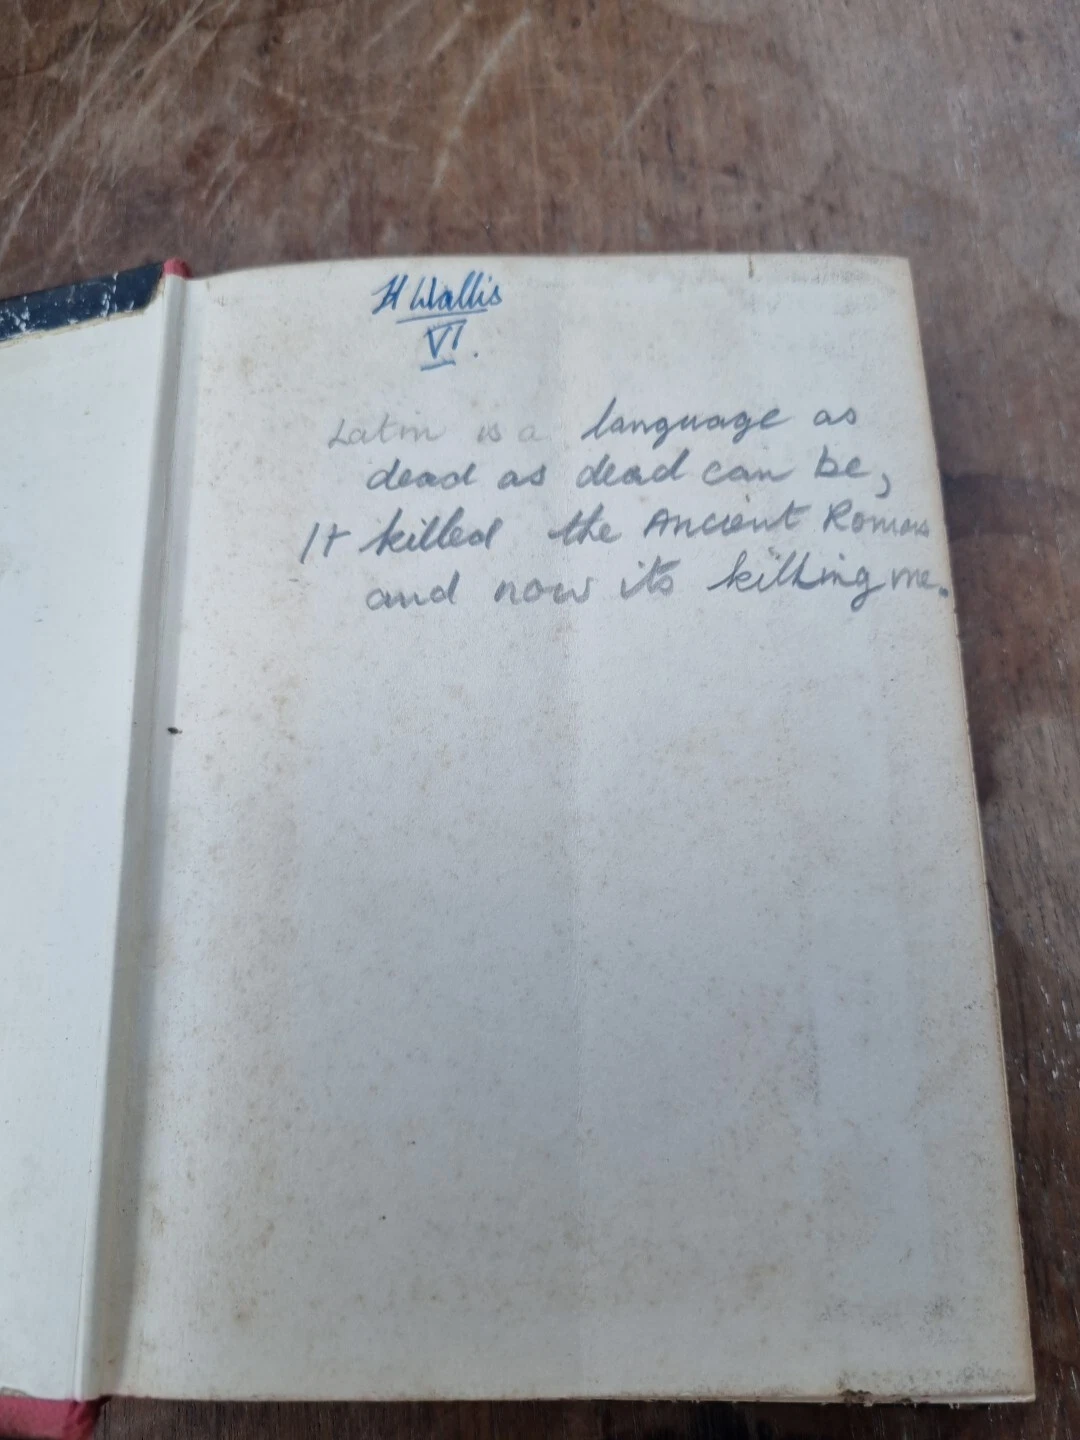 H Wallis
VI.
Latin is a language as
dead as dead can be,
It killed the Ancient Romans
and now its killing me.